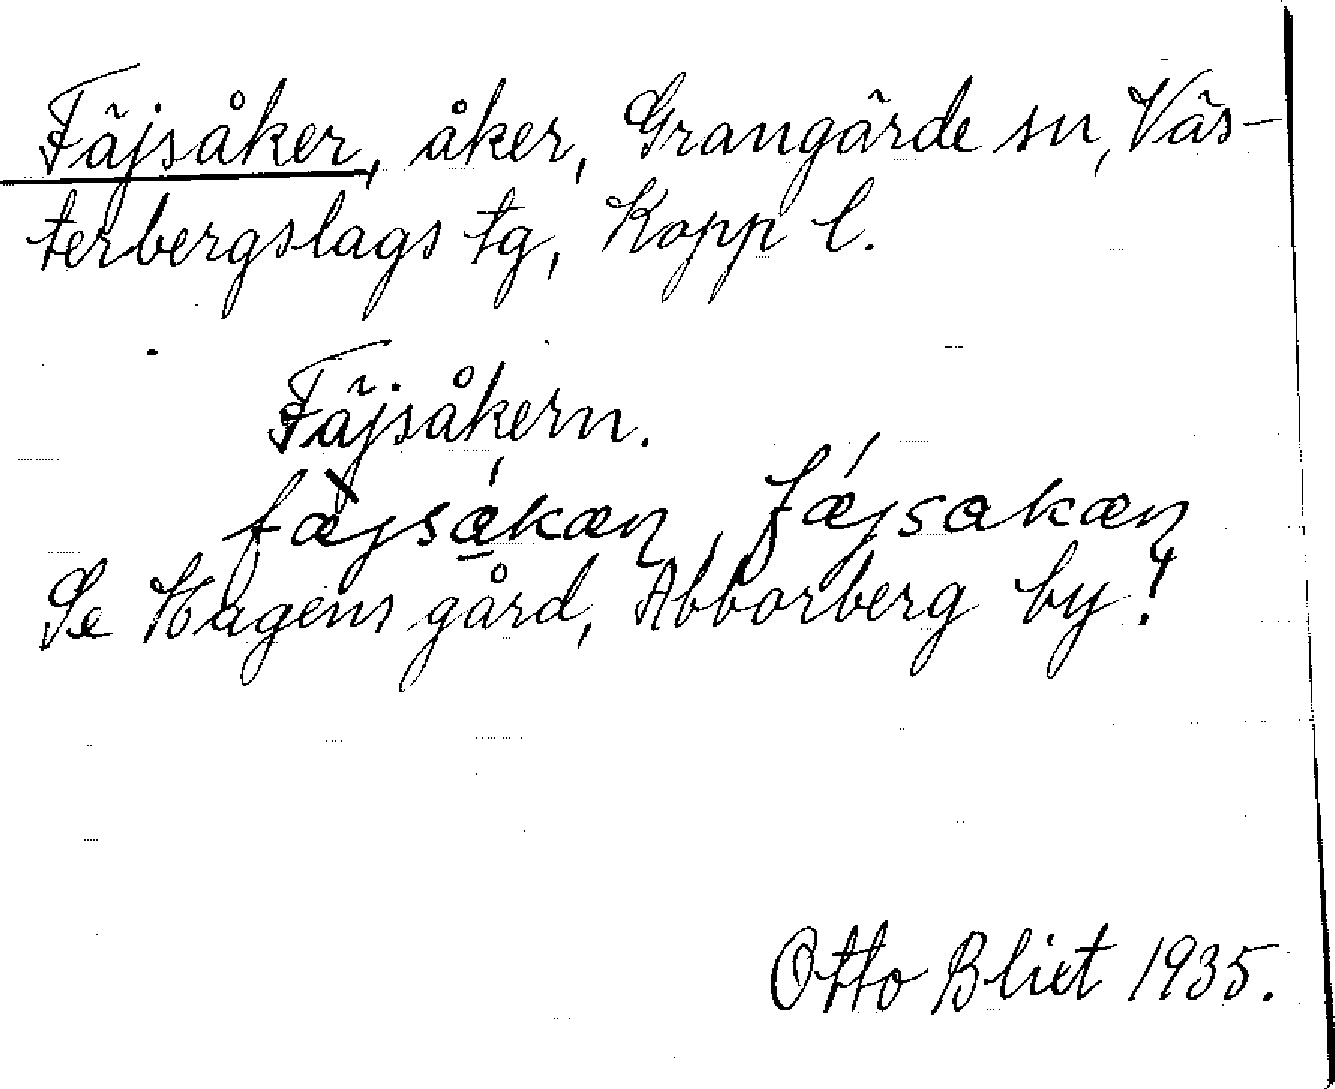 Fäjsåker, åker, Grangärde sn, Väs-
terbergslags tg, Kopp l.
Fäjsåkern.
fæ̀jsákæn, fǽjsakæn
Se Hagens gård, Abborberg by!
Otto Blixt 1935.